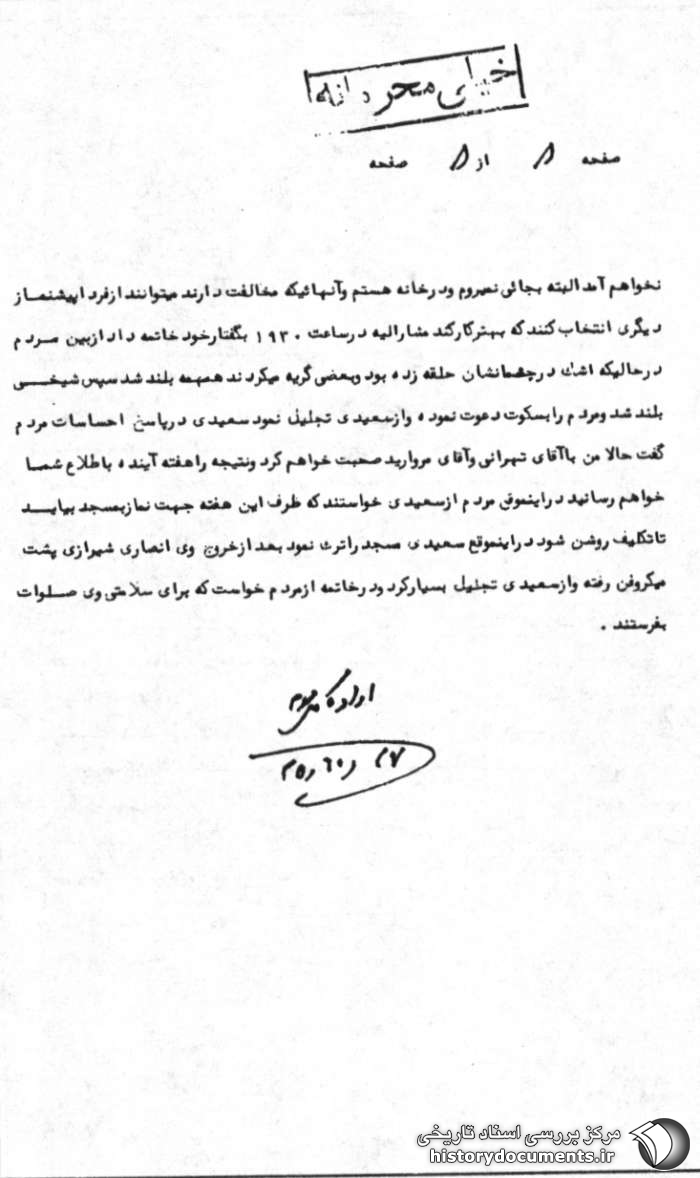 خیلی محرمانه
صفحه ۵ از ۵ صفحه
نخواهم آمد البته بجائی نمیروم ودرخانه هستم وآنهائیکه مخالفت دارند میتوانند ازفردا پیشنماز
دیگری انتخاب کنند که بهتر کار کند مشارالیه درساعت ۱۹۳۰ بگفتار خود خاتمه داد ازبین مردم
درحالیکه اشک در چشمانشان حلقه زده بود وبعضی گریه میکردند همهمه بلند شد سپس شیخی
بلند شد ومردم را بسکوت دعوت نموده وازسعیدی تجلیل نمود سعیدی درپاسخ احساسات مردم
گفت حالا من باآقای تهرانی وآقای مروارید صحبت خواهم کرد ونتیجه را هفته آینده باطلاع شما
خواهم رسانید دراینموقع مردم ازسعیدی خواستند که ظرف این هفته جهت نماز بمسجد بیاید
تاتکلیف روشن شود دراینموقع سعیدی مسجد راترک نمود بعد ازخروج وی انصاری شیرازی پشت
میکروفن رفته وازسعیدی تجلیل بسیار کرد ودرخاتمه ازمردم خواست که برای سلامتی وی صلوات
بفرستند .
مرکز بررسی اسناد تاریخی
historydocuments.ir